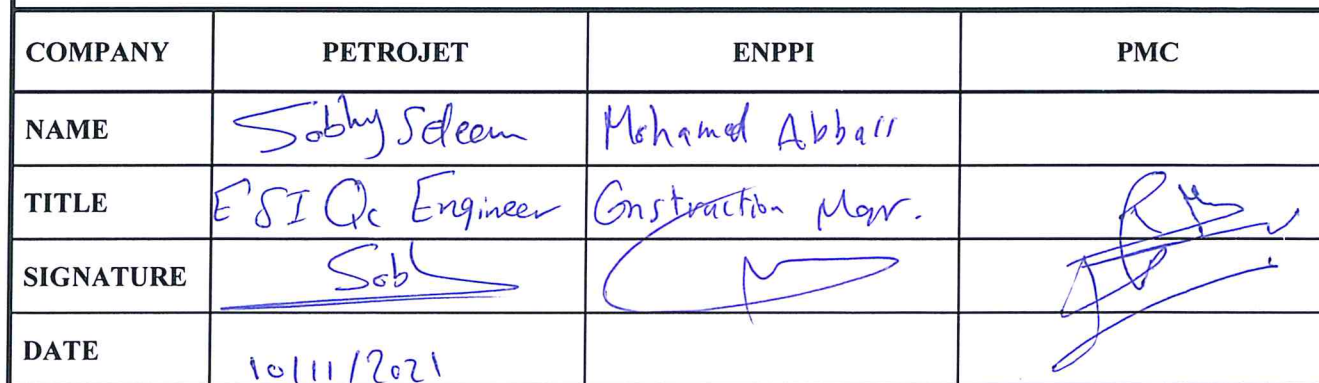 COMPANY PETROJET ENPPI PMC
NAME Sobhy Seleem Mohamed Abbass
TITLE E&I Qc Engineer Construction Mgr.
SIGNATURE Sob
DATE 10/11/2021